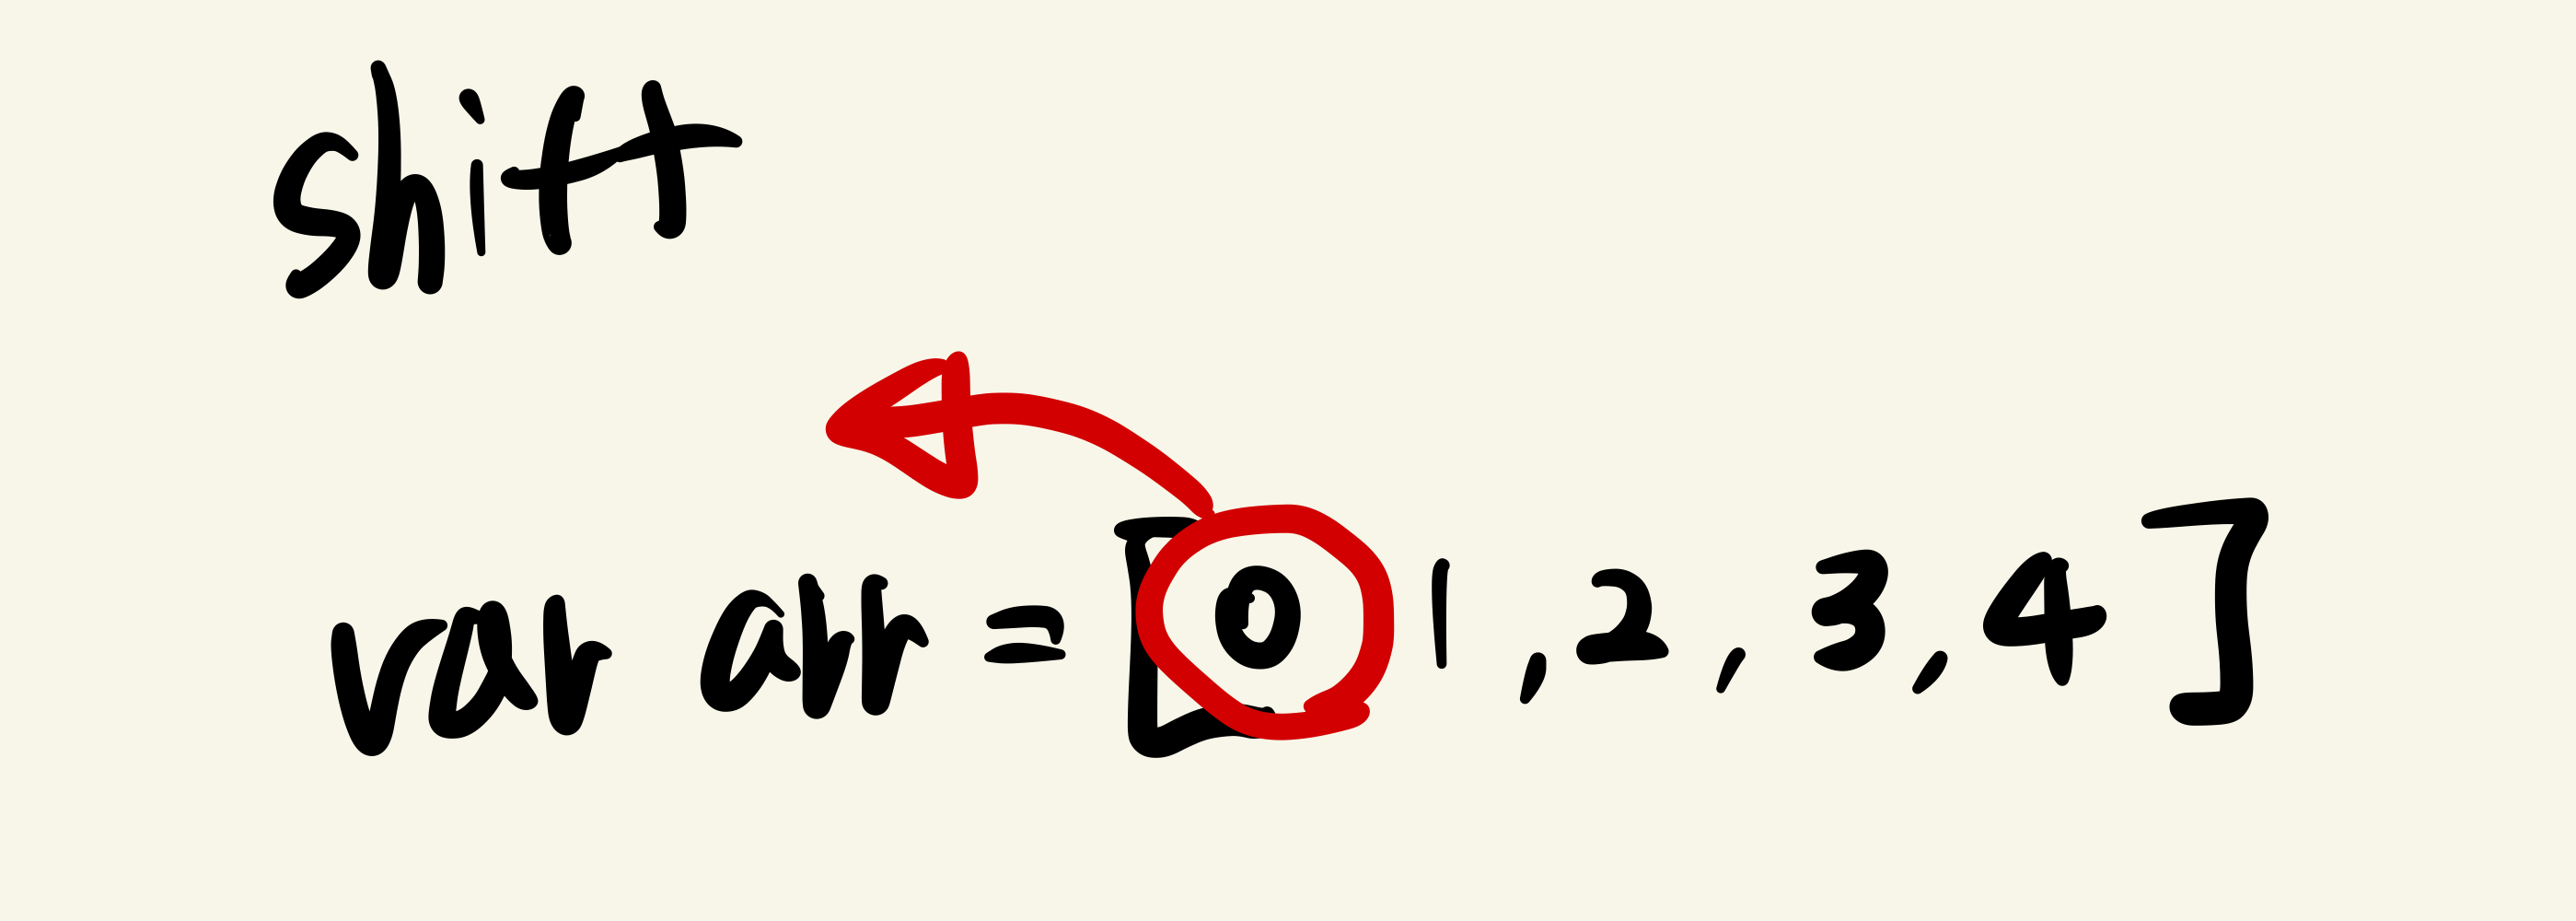 shift
var arr = [0 1,2,3,4]